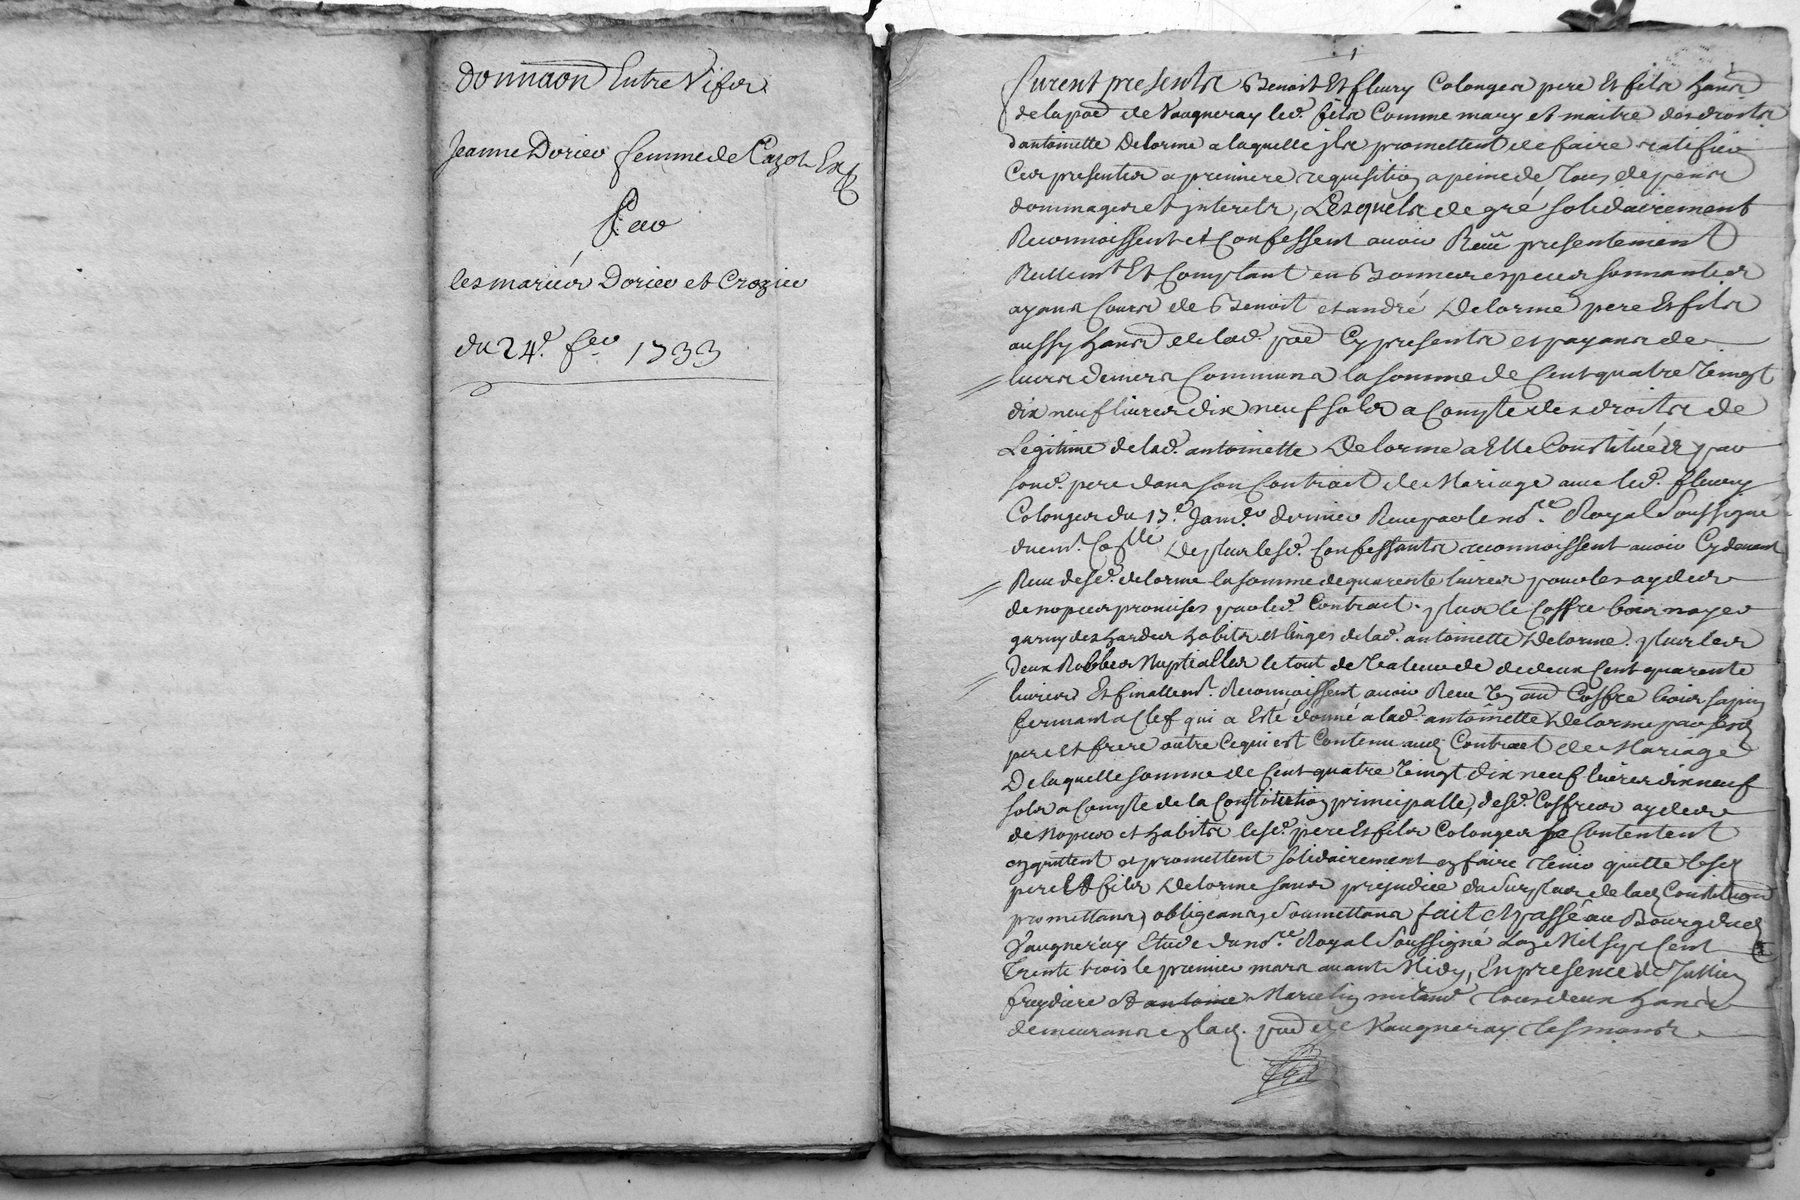 donnaon Entre Vifs
Jeanne Dorier femme de Cazot Ex
Par
les mariés Dorier et Crozier
du 24e. fer 1733
1
Furent presents Benoit Et fleury Colonges pere Et fils hans
de la poe de Vaugneray led. fils Comme mary et maitre des droits
d'antoinette Delorme a laquelle ils promettent de faire ratifier
Ces presentes a premiere requisition a peine de tous depens
dommages et interets, Lesquels de gré solidairement
Reconnoissent et Confessent avoir Receu presentement
Reellemt Et Comptant en Bonnes especes sonnantes
ayans Cours de Benoit et andré Delorme pere Et fils
aussy hans de lad. poe Cy presents et payans de
leurs deniers Communs la somme de Cent quatre vingt
dix neuf livres dix neuf sols a Compte des droits de
Legitime de lad. antoinette Delorme a Elle Constituée par
sond. pere dans son Contract de Mariage avec led. fleury
Colonges du 17e Janver dernier Receu par le nore Royal Soussigné
duemt. Collé De plus lesd. Confessants reconnoissent avoir Cy devant
Receu desd. delorme la somme de quarente livres pour les aydes
de nopces promises par led. Contract. plus le Coffre bois noyer
garny des hardes habits et linges de lad. antoinette Delorme. plus les
deux Robbes Nuptialles le tout de valeur de deux Cent quarente
livres Et finallemt. Reconnoissent avoir Receu un Coffre bois sapin
fermant a Clef qui a Esté donné a lad. antoinette Delorme par sesd
pere Et frere outre Ce qui est Contenu aud Contract de Mariage
De laquelle somme de Cent quatre vingt dix neuf livres dix neuf
sols a Compte de la Constitution principalle, desd. Coffres aydes
de Nopces et habits lesd. pere Et fils Colonges se Contentent
en quittent et promettent solidairement en faire tenir quitte lesd
pere Et fils Delorme sans prejudice du Surplus de lad Constituon
promettans, obligeans, Soumettans fait et passé au Bourg dud
Vaugneray Etude du nore Royal Soussigné L'an Mil sept Cent
Trente trois le premier mars avant Midy, En presence de Jullien
freydiere Et antoine Marcelin miland tous deux hans
demeurans en lad. poe de Vaugneray tesmoins